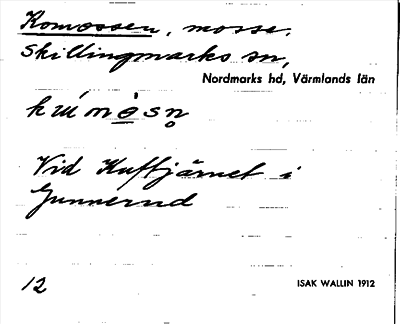 Komossen, mosse.
Skillingmarks sn,
Nordmarks hd, Värmlands län
Vid Kuftjärnet i
Gunnerud
12
ISAK WALLIN 1912